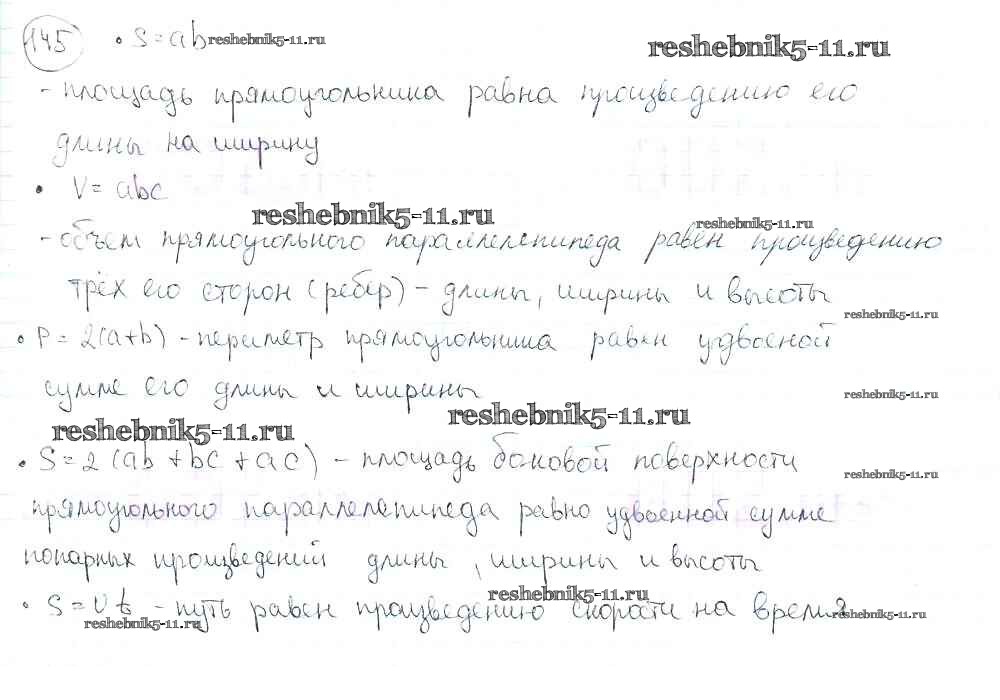 145 • S=ab reshebnik5-11.ru
reshebnik5-11.ru
- площадь прямоугольника равна произведению его
длины на ширину
• V = abc
reshebnik5-11.ru
reshebnik5-11.ru
- объем прямоугольного параллелепипеда равен произведению
трёх его сторон (ребер) - длины, ширины и высоты
reshebnik5-11.ru
• P = 2(a+b) - периметр прямоугольника равен удвоеной
сумме его длины и ширины
reshebnik5-11.ru
reshebnik5-11.ru
reshebnik5-11.ru
• S = 2 (ab + bc + ac) - площадь боковой поверхности
reshebnik5-11.ru
прямоугольного параллелепипеда равно удвоенной сумме
попарных произведений длины, ширины и высоты
reshebnik5-11.ru
• S = Vt - путь равен произведению скорости на время
reshebnik5-11.ru
reshebnik5-11.ru